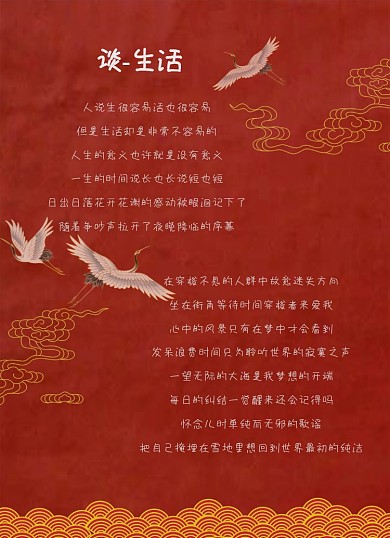 谈-生活
人说生很容易活也很容易
但是生活却是非常不容易的
人生的意义也许就是没有意义
一生的时间说长也长说短也短
日出日落花开花谢的感动被眼泪记下了
随着争吵声拉开了夜晚降临的序幕
在穿梭不息的人群中故意迷失方向
坐在街角等待时间穿梭者来爱我
心中的风景只有在梦中才会看到
发呆浪费时间只为聆听世界的寂寞之声
一望无际的大海是我梦想的开端
每日的纠结一觉醒来还会记得吗
怀念儿时单纯而无邪的歌谣
把自己掩埋在雪地里想回到世界最初的纯洁